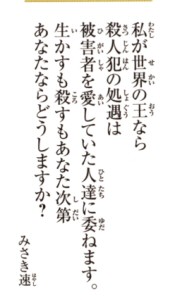 私が世界の王なら
殺人犯の処遇は
被害者を愛していた人達に委ねます。
生かすも殺すもあなた次第
あなたならどうしますか?
みさき速